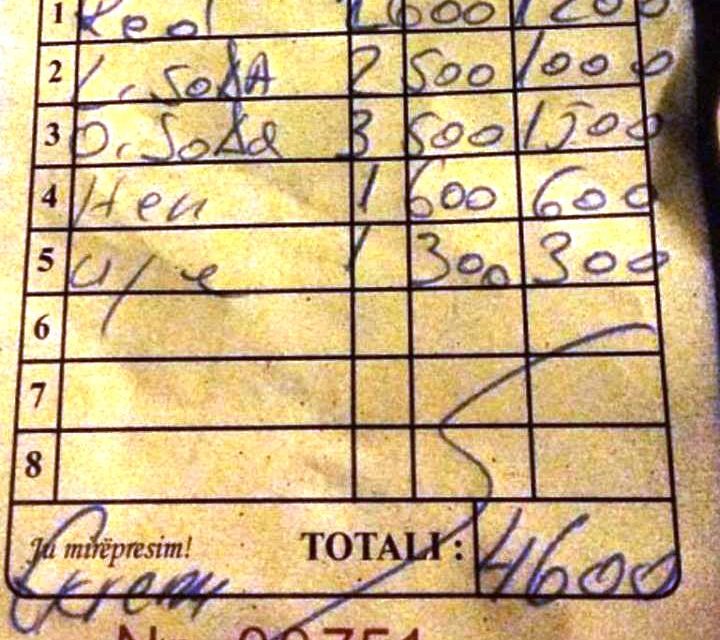 1 Red 2 600 1200
2 L. SodA 2 500 1000
3 O. Soda 3 500 1500
4 Hen 1 600 600
5 uje 1 300 300
6
7
8
Ju mirëpresim! TOTALI: 4600
Ekrem